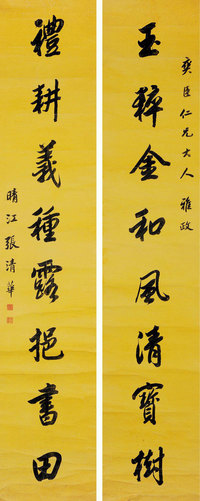 爽臣仁兄大人雅政
玉粹金和風清寶樹
禮耕義種露挹書田
晴江張清華